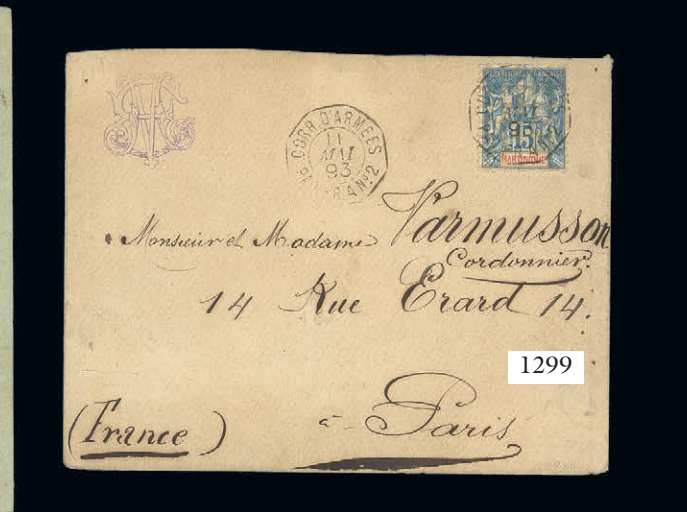 CORR. D'ARMEES
11
MAI
93
Nº2
MAI
15
MARTINIQUE
Monsieur et Madame Varmusson
Cordonnier.
14 Rue Erard 14.
1299
(France) à Paris